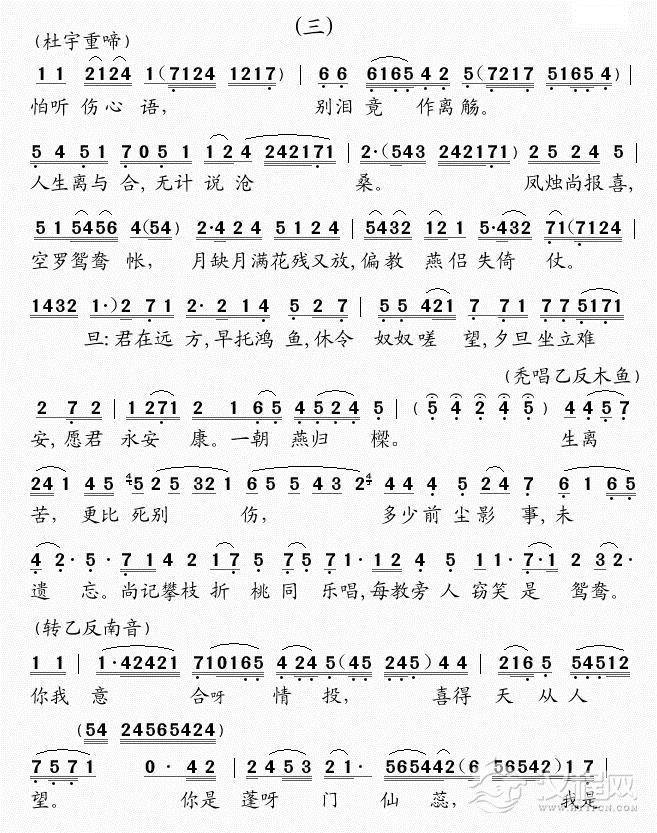 (三)
(杜宇重啼)
1 1 2124 1(7124 1217) | 6 6 6165 4 2 5(7217 5165 4)
怕听 伤心 语， 别泪 竟 作离 觞。
5 4 5 1 7 0 5 1 1 2 4 242171 | 2·(543 242171) 2 5 2 4 5
人生离与 合，无计 说 沧 桑。 凤烛尚报喜，
5 1 5456 4(54) | 2·4 2 4 5 1 2 4 | 5432 12 1 5·432 71(7124
空罗鸳鸯 帐， 月缺月满花残又放，偏教 燕侣 失倚 仗。
1432 1·) 2 7 1 2· 2 1 4 5 2 7 | 5 5 421 7 7 1 7 7 5171
旦:君在远 方，早托鸿 鱼，休令 奴奴嗟 望，夕旦坐立难
(秃唱乙反木鱼)
2 7 2 | 1271 2 1 6 5 4 5 2 4 5 | (5 4 2 4 5) 4 4 5 7
安，愿君 永安 康。一朝 燕归 樑。 生离
24 1 4 5 4 5 2 5 3 2 1 6 5 5 4 3 2 4 4 4 5 2 4 7 6 1 6 5
苦， 更比 死别 伤， 多少前 尘影 事，未
4 2· 5·7 1 4 2 1 7 5 7 5 7 1·1 2 2 4 5 1 1 7·1 2 3 2·
遗 忘。尚记攀枝 折 桃 同 乐唱，每教旁 人 窃笑 是 鸳鸯。
(转乙反南音)
1 1 | 1·42421 710165 4 24 5(45 245) 4 4 | 216 5 54512
你我 意 合呀 情 投， 喜得 天 从人
(54 24565424)
7 5 7 1 0·4 2 | 2 4 5 3 2 1· 565442(6 56542) 1 7
望。 你是 蓬呀 门 仙 蕊， 我是